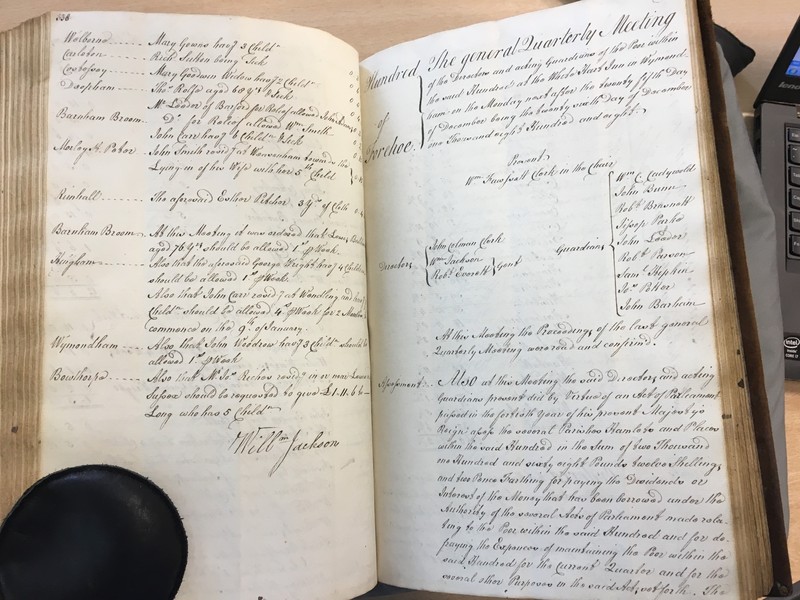 336
Welborne Mary Gowns hav.g 3 Child.n
Carleton Rich.d Sutton being Sick
Costessey Mary Goodwin Widow hav.g 2 Child.n
Deopham Tho.s Rolfe aged 60 y.rs Sick
M.r Leeder of Barford for Relief allowed John
Barnham Broom D.o for Relief allowed W.m Smith
John Carr hav.g 4 Child.n Sick
Morley S.t Peter John Smith resid.g at towards the
Lying in of his Wife with her 5.th Child
Runhall The aforesaid Esther Pitcher 3 y.ds of Cloth
Barnham Broom At this Meeting it was ordered that
aged 76 y.rs should be allowed 1.s p Week
Kingham Also that the aforesaid George Wright hav.g 4 Children
should be allowed 1.s p Week
Also that John Carr resid.g at Wendling and
Child.n should be allowed 4.s p Week for 2 Months to
commence on the 9.th of January
Wymondham Also that John Woodrow hav.g 3 Child.n should be
allowed 1.s p Week
Bowthorpe Also that M.r resid.g in or near
Sussex should be requested to give £1.11.6 to
Long who has 5 Child.n
Will.m Jackson
Hundred
of
Forehoe.
The general Quarterly Meeting
of the Directors and acting Guardians of the Poor within
the said Hundred at the White Hart Inn in Wymond-
ham on the Monday next after the twenty fifth Day
of December being the twenty sixth day of December
one Thousand eight Hundred and eight.
Present
W.m Clerk in the Chair
Directors
John Colman Clerk
W.m Jackson
Rob.t Everett
Gent
Guardians
W.m C.
John Bunn
Rob.t
John Leeder
Rob.t Parson
Sam.l
John Barham
At this Meeting the Proceedings of the last general
Quarterly Meeting were read and confirmed.
Assessment. Also at this Meeting the said Directors and acting
Guardians present did by Virtue of an Act of Parliament
passed in the fortieth Year of his present Majesty's
Reign assess the several Parishes Hamlets and Places
within the said Hundred in the Sum of two Thousand
one Hundred and sixty eight Pounds twelve Shillings
and two Pence Farthing for paying the Dividends or
Interest of the Money that has been borrowed under the
Authority of the several Acts of Parliament made rela-
ting to the Poor within the said Hundred and for de-
fraying the Expences of maintaining the Poor within the
said Hundred for the current Quarter and for the
several other Purposes in the said Act set forth. The
intel